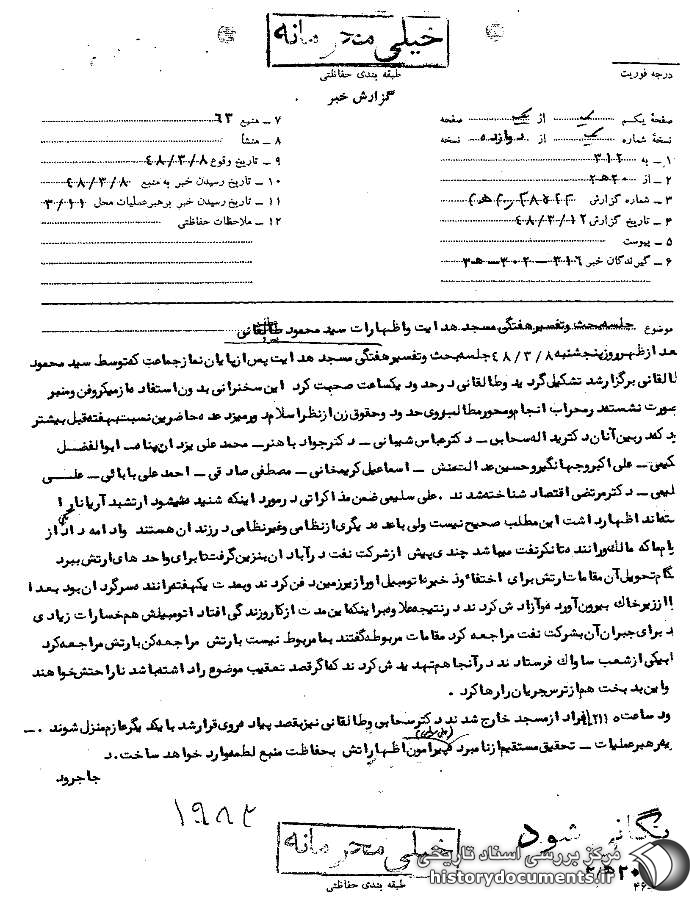 خیلی محرمانه
طبقه بندی حفاظتی
درجه فوریت
گزارش خبر
صفحهٔ یکم یک از یک صفحه
نسخهٔ شماره یک از دوازده نسخه
۱ـ به ۳۱۲
۲ـ از ۲۰ ه‍ ۲
۳ـ شماره گزارش
۴ـ تاریخ گزارش ۴۸/۳/۱۲
۵ـ پیوست
۶ـ گیرندگان خبر ۳۱۶ـ ۳۰۲ـ ه‍ ۳
۷ـ منبع ۶۳
۸ـ منشأ
۹ـ تاریخ وقوع ۴۸/۳/۸
۱۰ـ تاریخ رسیدن خبر به منبع ۴۸/۳/۸
۱۱ـ تاریخ رسیدن خبر برهبر عملیات محل ۳/۱۱
۱۲ـ ملاحظات حفاظتی
موضوع جلسه بحث و تفسیر هفتگی مسجد هدایت و اظهارات سید محمود طالقانی
بعد از ظهر روز پنجشنبه ۴۸/۳/۸ جلسه بحث و تفسیر هفتگی مسجد هدایت پس از پایان نماز جماعت که توسط سید محمود
طالقانی برگزار شد تشکیل گردید و طالقانی در حدود یکساعت صحبت کرد این سخنرانی بدون استفاده از میکروفن و منبر
بصورت نشسته در محراب انجام و محور مطالب روی حدود و حقوق زن از نظر اسلام دور میزد عده حاضرین نسبت بهفته قبل بیشتر
بود که در بین آنان دکتر یداله سحابی ـ دکتر عباس شیبانی ـ دکتر جواد باهنر ـ محمد علی یزدان پناه ـ ابوالفضل
حکیمی ـ علی اکبر و جهانگیر و حسین عدالتمنش ـ اسماعیل کریمخانی ـ مصطفی صادقی ـ احمد علی بابائی ـ علی
سلیمی ـ دکتر مرتضی اقتصاد شناخته شدند . علی سلیمی ضمن مذاکراتی در مورد اینکه شنید میشود ارتشبد آریانا را
اظهار داشت این مطلب صحیح نیست ولی با عده دیگری از نظامی و غیر نظامی در زندان هستند و ادامه داد از
که مالک و راننده تانکر نفت میباشد چندی پیش از شرکت نفت در آبادان بنزین گرفت تا برای واحدهای ارتش ببرد
هنگام تحویل آن مقامات ارتش برای اختفا و اتومبیل او را زیر زمین دفن کردند و بمدت یکهفته راننده سرگردان بود بعد او
را از زیر خاک بیرون آورده و آزادش کردند در نتیجه علاوه بر اینکه این مدت از کار و زندگی افتاد اتومبیلش هم خسارات زیادی
دید برای جبران آن بشرکت نفت مراجعه کرد مقامات مربوطه گفتند بما مربوط نیست بارتش مراجعه کن بارتش مراجعه کرد
بیکی از شعب ساواک فرستادند در آنجا هم تهدیدش کردند که اگر قصد تعقیب موضوع را داشته باشد ناراحتش خواهند
و این بدبخت هم از ترس جریان را رها کرد .
افراد از مسجد خارج شدند دکتر سحابی و طالقانی نیز بقصد پیاده روی قرار شد با یکدیگر عازم منزل شوند . ـ
نظریه رهبر عملیات ـ تحقیق مستقیم از نامبرده پیرامون اظهاراتش بحفاظت منبع لطمه وارد خواهد ساخت . د
جاجرود
۱۹۸۳
خیلی محرمانه
طبقه بندی حفاظتی
شود
مرکز بررسی اسناد تاریخی
historydocuments.ir